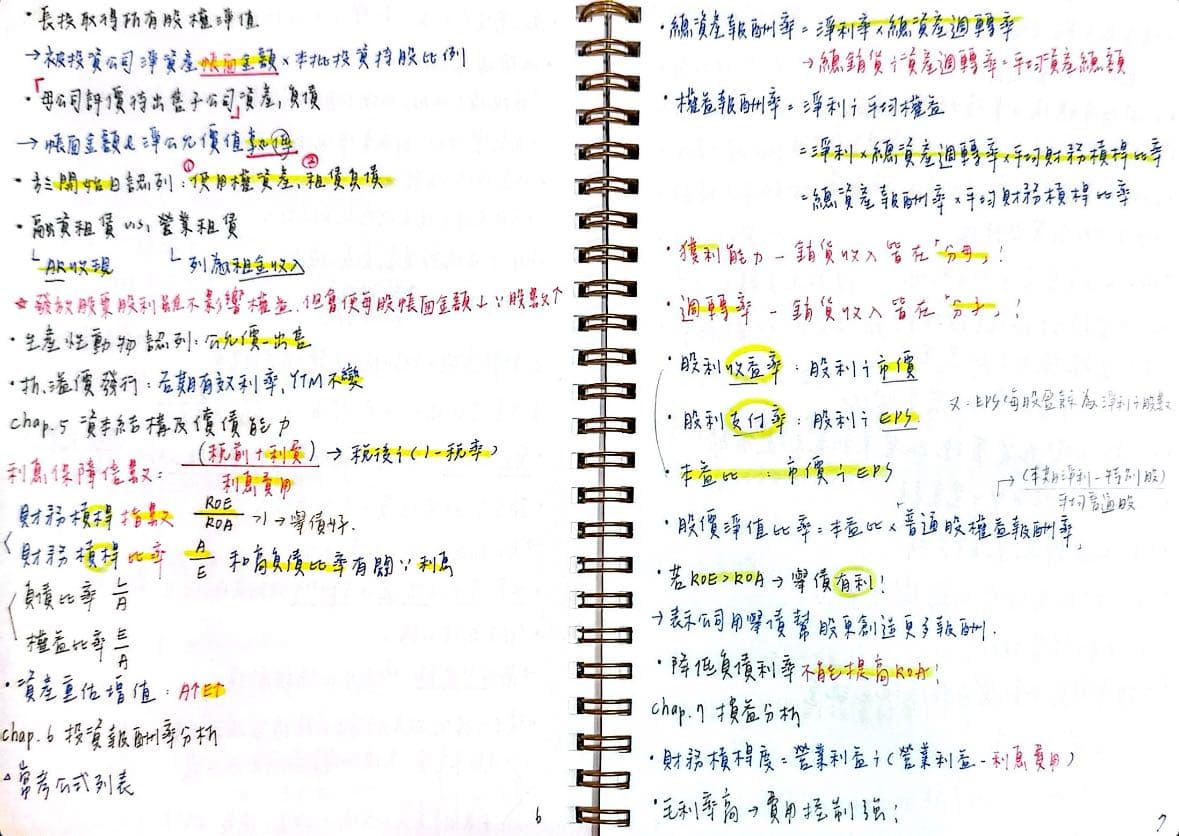 ・長投取得所有股權淨值
→被投資公司淨資產帳面金額×本批投資持股比例
・「母公司評價待出售子公司資產、負債」
→帳面金額&淨公允價值孰低
・於開始日認列:①使用權資產、②租賃負債
・融資租賃 vs. 營業租賃
└AR收現 └列為租金收入
☆發放股票股利雖不影響權益,但會使每股帳面金額↓∵股數↑
・生產性動物認列:公允價-出售
・折、溢價發行:各期有效利率、YTM不變
chap.5 資本結構及償債能力
利息保障倍數:(稅前+利費)/利息費用 → 稅後÷(1-稅率)
財務槓桿指數 ROE/ROA >1→舉債好.
財務槓桿比率 A/E 和有負債比率有關∵利息
負債比率 L/A
權益比率 E/A
・資產重估增值:A↑E↑
chap.6 投資報酬率分析
△常考公式列表
6
・總資產報酬率=淨利率×總資產週轉率
→總銷貨÷資產週轉率=平均資產總額
・權益報酬率=淨利÷平均權益
=淨利×總資產週轉率×平均財務槓桿比率
=總資產報酬率×平均財務槓桿比率
・獲利能力-銷貨收入皆在「分母」!
・週轉率-銷貨收入皆在「分子」!
・股利收益率:股利÷市價
・股利支付率:股利÷EPS
又:EPS(每股盈餘為淨利÷股數
・本益比:市價÷EPS
→(本期淨利-特別股)/平均普通股
・股價淨值比率=本益比×普通股權益報酬率,
・若ROE>ROA→舉債有利!
→表示公司用舉債幫股東創造更多報酬.
・降低負債利率不能提高ROA!
chap.7 損益分析
・財務槓桿度=營業利益÷(營業利益-利息費用)
・毛利率高→費用控制強;
7